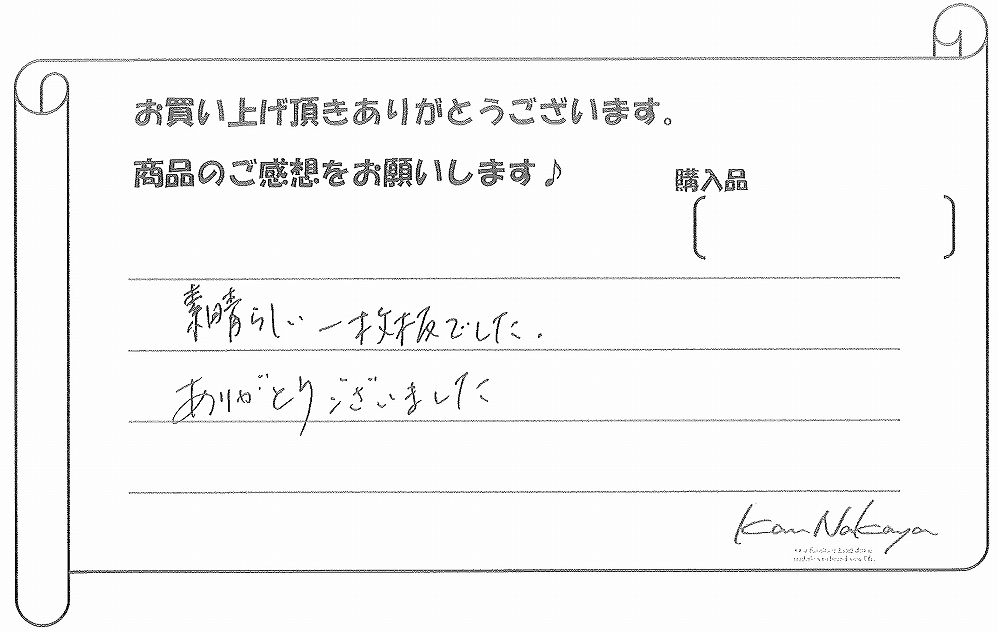 お買い上げ頂きありがとうございます。
商品のご感想をお願いします♪
購入品
素晴らしい一枚板でした.
ありがとうございました
Kan Nakaya